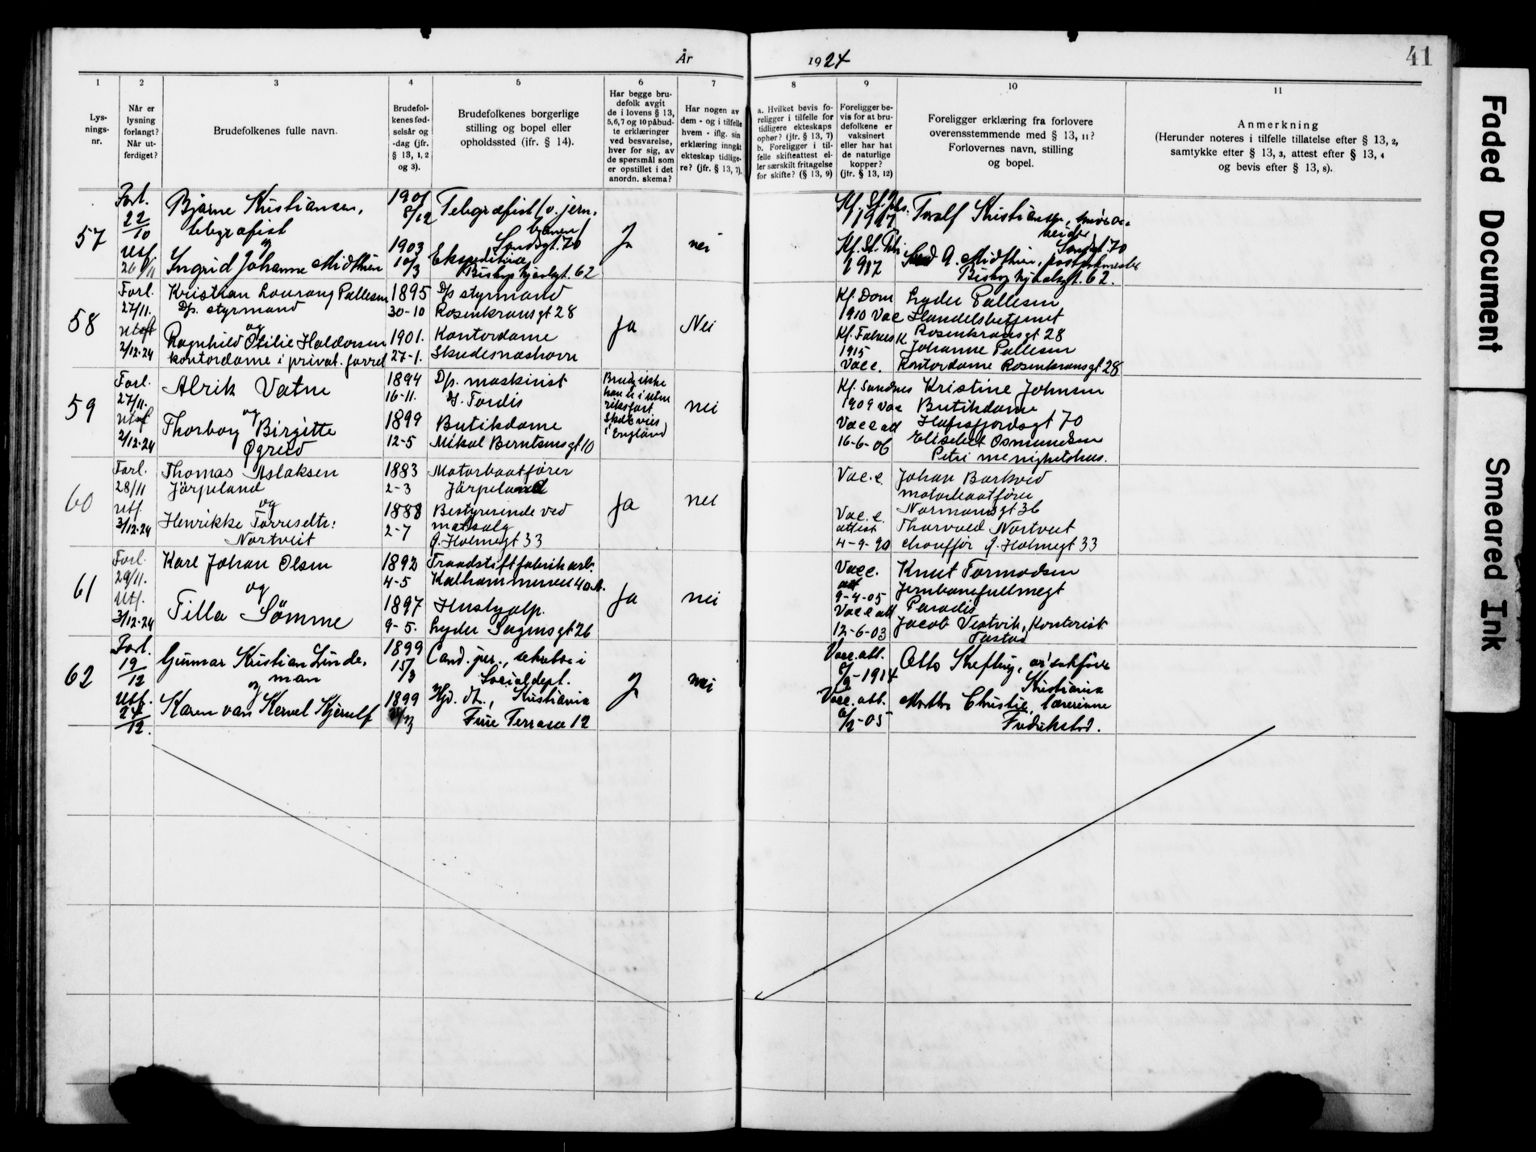 År 1924
41
1 2 3 4 5 6 7 8 9 10 11
Lys-
nings-
nr.
Når er
lysning
forlangt?
Når ut-
ferdiget?
Brudefolkenes fulle navn.
Brudefol-
kenes fød-
selsår og
-dag (jfr.
§ 13, 1, 2
og 3).
Brudefolkenes borgerlige
stilling og bopel eller
opholdssted (jfr. § 14).
Har begge bru-
defolk avgit
de i lovens § 13,
5,6,7 og 10 påbud-
te erklæringer
ved besvarelse,
hver for sig, av
de spørsmål som
er opstillet i det
anordn. skema?
Har nogen av
dem - og i tilfelle
hvem - iflg. sin
erklæring inngått
ekteskap tidlige-
re? (jfr. § 13, 7).
a. Hvilket bevis fo-
religger i tilfelle for
tidligere ekteskaps
ophør? (jfr. § 13, 7)
b. Foreligger i til-
felle skifteattest el-
ler særskilt fritagelse
for skifte? (§ 13, 9)
Foreligger be-
vis for at bru-
defolkene er
vaksinert
eller har hat
de naturlige
kopper?
(jfr. § 13, 12)
Foreligger erklæring fra forlovere
overensstemmende med § 13, 11?
Forlovernes navn, stilling
og bopel.
Anmerkning
(Herunder noteres i tilfelle tillatelse efter § 13, 2,
samtykke etter § 13, 3, attest efter § 13, 4
og bevis efter § 13, 8).
57
Forl.
22/10
Utf.
26/11
Bjarne Kristiansen,
telegrafist
og
Ingrid Johanne Midthun
1901
8/12
1903
10/3
Telegrafist v. jern-
banen
Sandsgt. 70
62
J
nei
1917
1917
Kristiansen,
Sandsgt. 70
Midthun,
62.
58
Forl.
27/11.
Utf
2/12-24
Kristian Lauranz Pallesen
D/s. styrmand
og
Ragnhild Otilie Haldorsen
kontordame i privat. forret
1895
30-10
1901.
27-1.
D/s styrmand
Rosenkransgt 28
Kontordame
Skudesneshavn
Ja
Nei
Kf. Dom
1910 Vac
Kf. Falnes K
1915
Vacc.
Lyder Pallesen
Handelsbetjent
Rosenkransgt 28
Johanne Pallesen
Kontordame Rosenkransgt 28
59
Forl.
27/11.
Utf
2/12-24
Alrik Vatne
og
Thorbory Birgitte
Øgreid
1894
16-11.
1899
12-5
D/s. maskinist
D/s. Tordis
Butikdame
Mikal Berntsensgt 10
i England
nei
Kf. Sandnes
1909 Vac
Vacc att
16-6-06
Kristine Johnsen
Butikdame
Hafrsfjordsgt 70
Elisabet Osmundsen
Petri menighetshus.
60
Forl.
28/11
Utf.
3/12-24
Thomas Aslaksen
Jörpeland
og
Henrikke Torriselte:
Nortveit
1883
2-3
1888
2-7
Motorbaatfører
Jörpeland
Bestyrerinde ved
matsalg
G. Holmegt 33
Ja
nei
Vac. e
Vac. e.
attest
4-9-90
Johan Barkved
motorbaatfører
Normansgt 36
Thorvald Nortveit
chauffør G. Holmegt 33
61
Forl.
29/11.
Utf.
3/12-24
Karl Johan Olsen
og
Tilla Sömme
1892
4-5
1897
9-5.
Traadstiftfabrik arb.
Kalhammerveien 40 A.
Hushjælp.
Lyder Sagensgt 26
Ja
nei
Vacc.
att
9-4-05
Vacc att
12-6-03
Knut Tormodsen
Jernbanefullmegt
Paradis
Jacob Vestvik, Kontorist
Tastad
62
Forl.
19/12
Utf.
24/12.
Gunnar Kristian Linde-
man
og
Karen van Kervel Kjerulf
1899
15/3
1899
Cand. jur., sekretær i
Socialdept.
Hjd. dt., Kristiania
Fine Terrasse 12
J
nei
Vacc. att.
1914
Vacc. att.
6/2-05
Otto Sheflug, o.r. sakfører
Kristiania
Martha Christie, lærerinne
Fredrikstad.
Faded Document
Smeared Ink